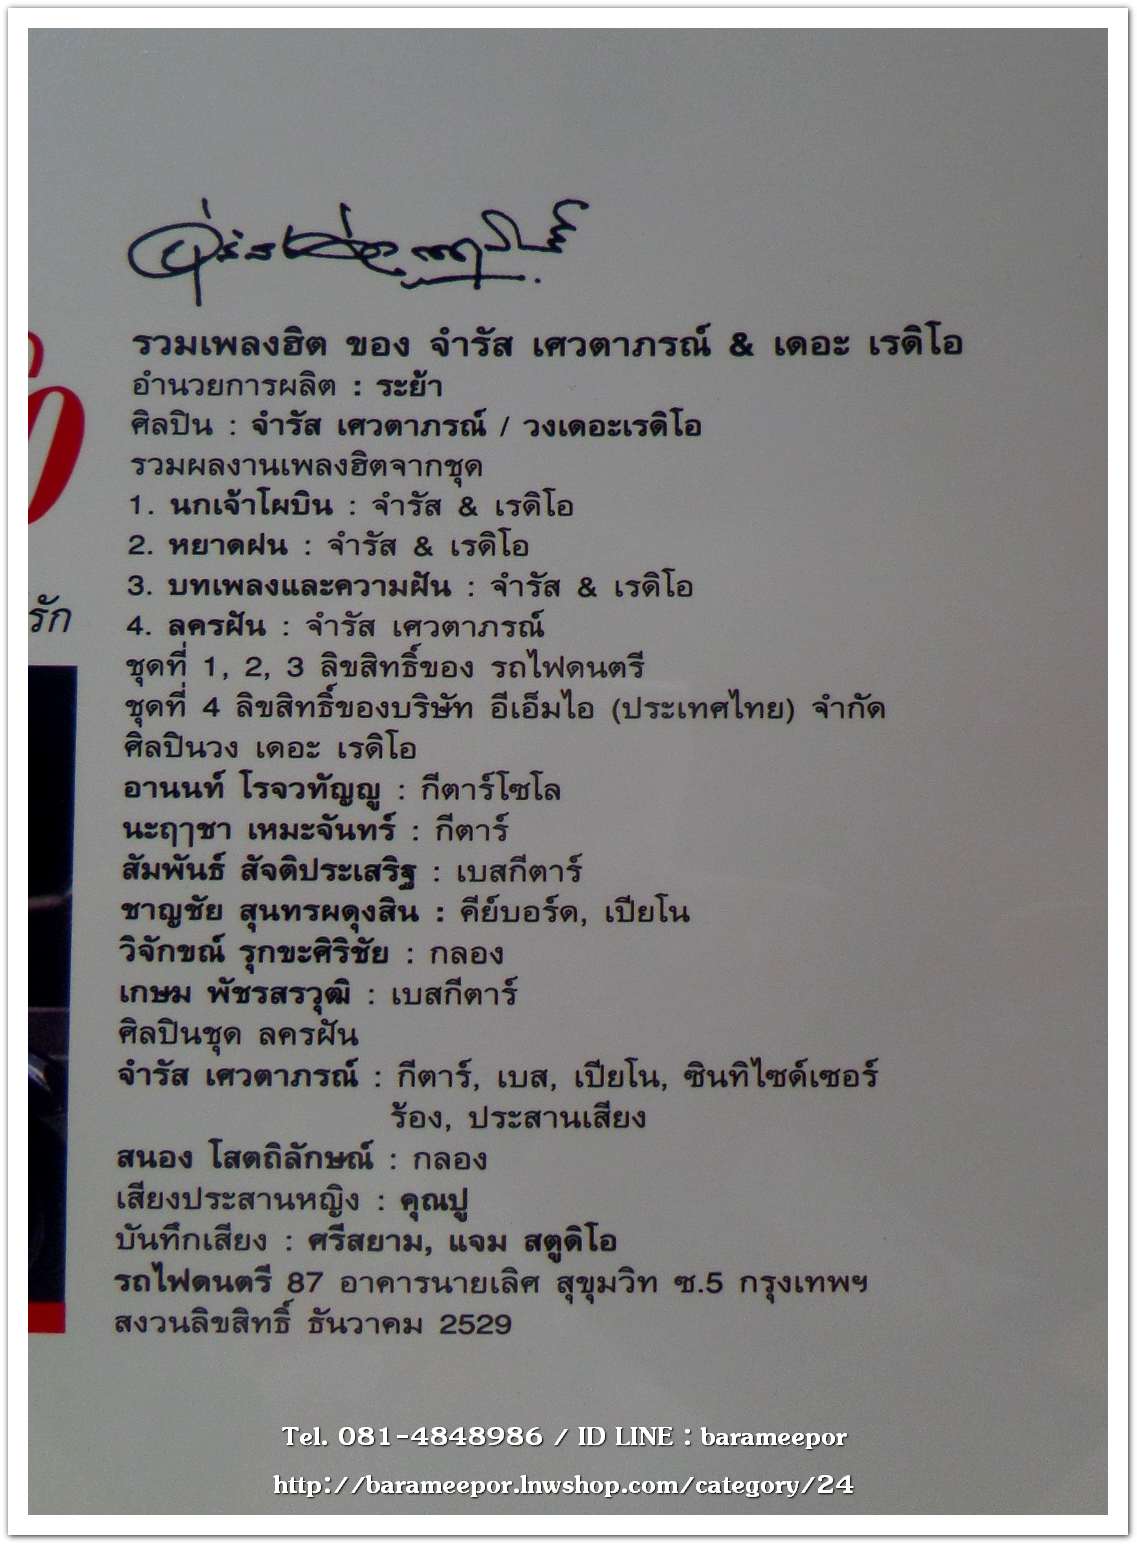 รวมเพลงฮิต ของ จำรัส เศวตาภรณ์ & เดอะ เรดิโอ
อำนวยการผลิต : ระย้า
ศิลปิน : จำรัส เศวตาภรณ์ / วงเดอะเรดิโอ
รวมผลงานเพลงฮิตจากชุด
1. นกเจ้าโผบิน : จำรัส & เรดิโอ
2. หยาดฝน : จำรัส & เรดิโอ
3. บทเพลงและความฝัน : จำรัส & เรดิโอ
รัก
4. ลครฝัน : จำรัส เศวตาภรณ์
ชุดที่ 1, 2, 3 ลิขสิทธิ์ของ รถไฟดนตรี
ชุดที่ 4 ลิขสิทธิ์ของบริษัท อีเอ็มไอ (ประเทศไทย) จำกัด
ศิลปินวง เดอะ เรดิโอ
อานนท์ โรจวทัญญู : กีตาร์โซโล
นะฤๅชา เหมะจันทร์ : กีตาร์
สัมพันธ์ สัจติประเสริฐ : เบสกีตาร์
ชาญชัย สุนทรผดุงสิน : คีย์บอร์ด, เปียโน
วิจักขณ์ รุกขะศิริชัย : กลอง
เกษม พัชรสรวุฒิ : เบสกีตาร์
ศิลปินชุด ลครฝัน
จำรัส เศวตาภรณ์ : กีตาร์, เบส, เปียโน, ซินทิไซด์เซอร์
ร้อง, ประสานเสียง
สนอง โสตถิลักษณ์ : กลอง
เสียงประสานหญิง : คุณปู
บันทึกเสียง : ศรีสยาม, แจม สตูดิโอ
รถไฟดนตรี 87 อาคารนายเลิศ สุขุมวิท ซ.5 กรุงเทพฯ
สงวนลิขสิทธิ์ ธันวาคม 2529
Tel. 081-4848986 / ID LINE : barameepor
http://barameepor.lnwshop.com/category/24